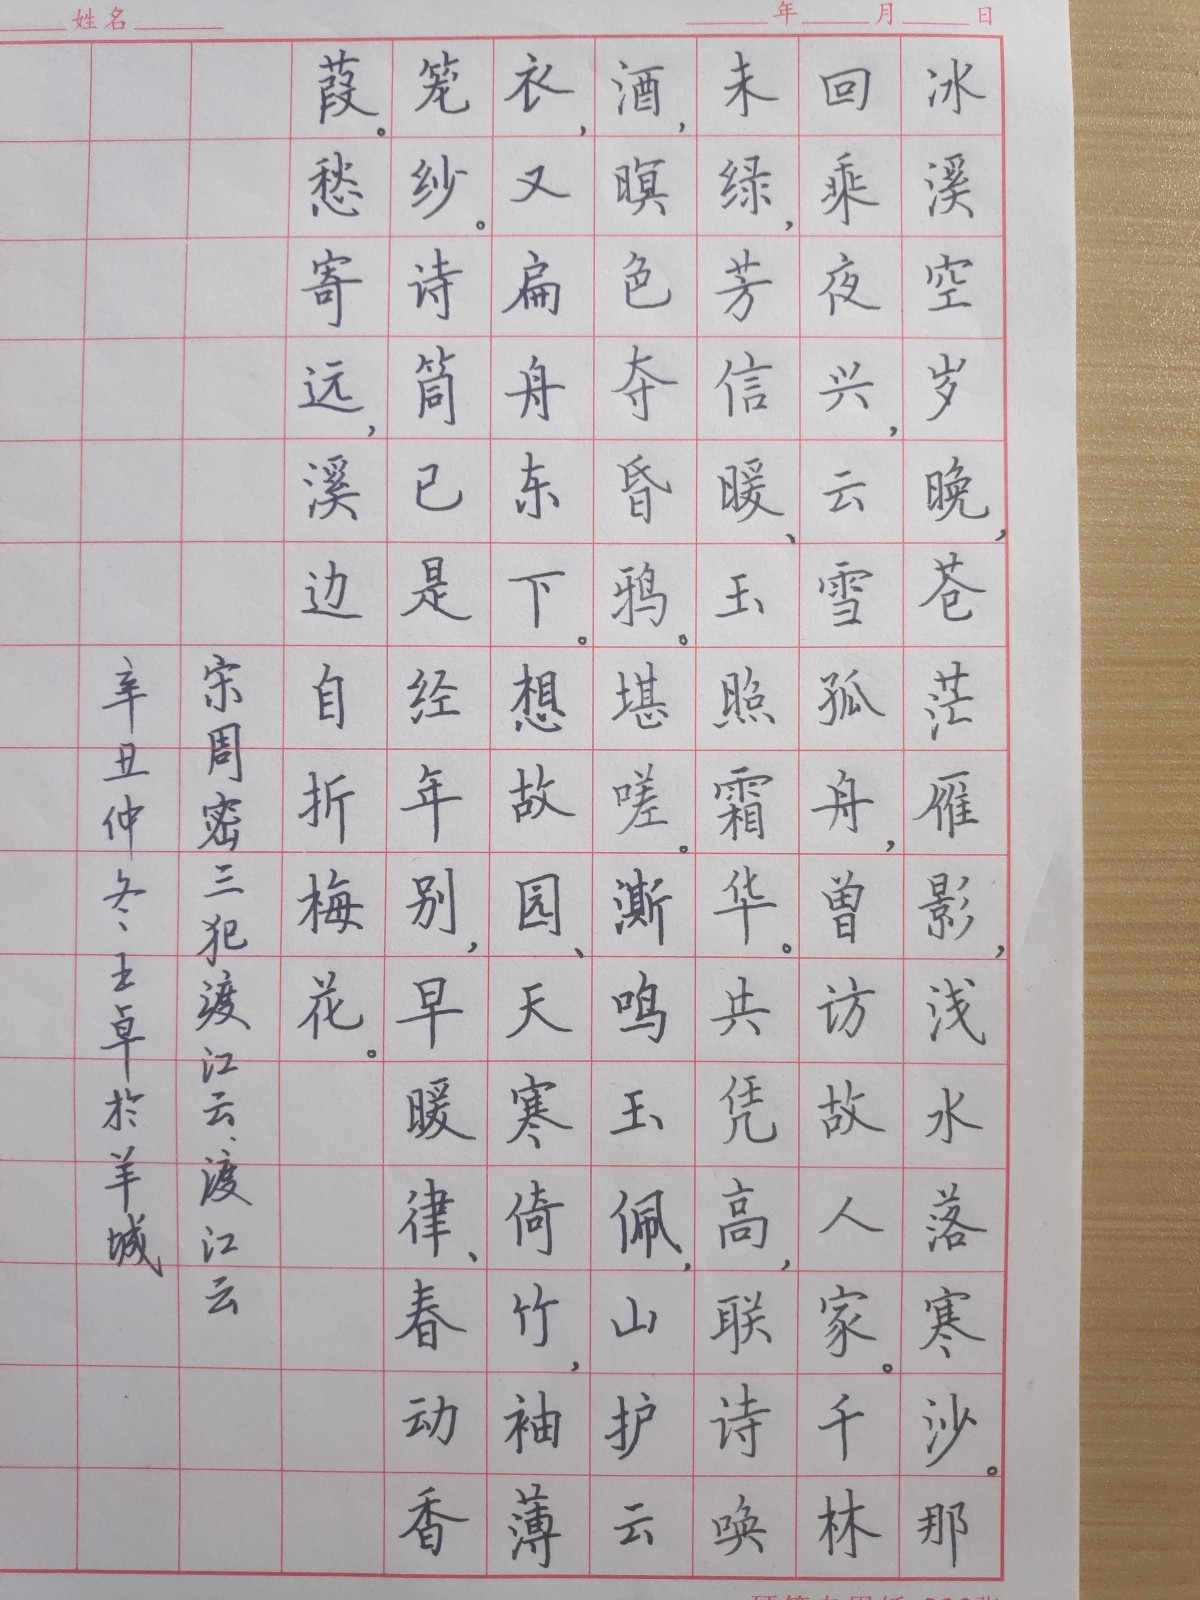 姓名 年 月 日
冰溪空岁晚，苍茫雁影，浅水落寒沙。那
回乘夜兴，云雪孤舟，曾访故人家。千林
未绿，芳信暖、玉照霜华。共凭高，联诗唤
酒，暝色夺昏鸦。堪嗟。澌鸣玉佩，山护云
衣，又扁舟东下。想故园、天寒倚竹，袖薄
笼纱。诗筒已是经年别，早暖律、春动香
葭。愁寄远，溪边自折梅花。
宋周密三犯渡江云、渡江云
辛丑仲冬王卓於羊城